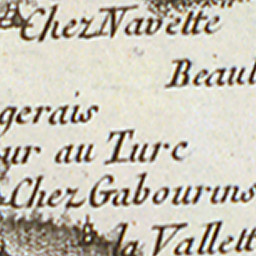 Chez Navette
Beaul
gerais
ur au Turc
Chez Gabourins
la Vallett